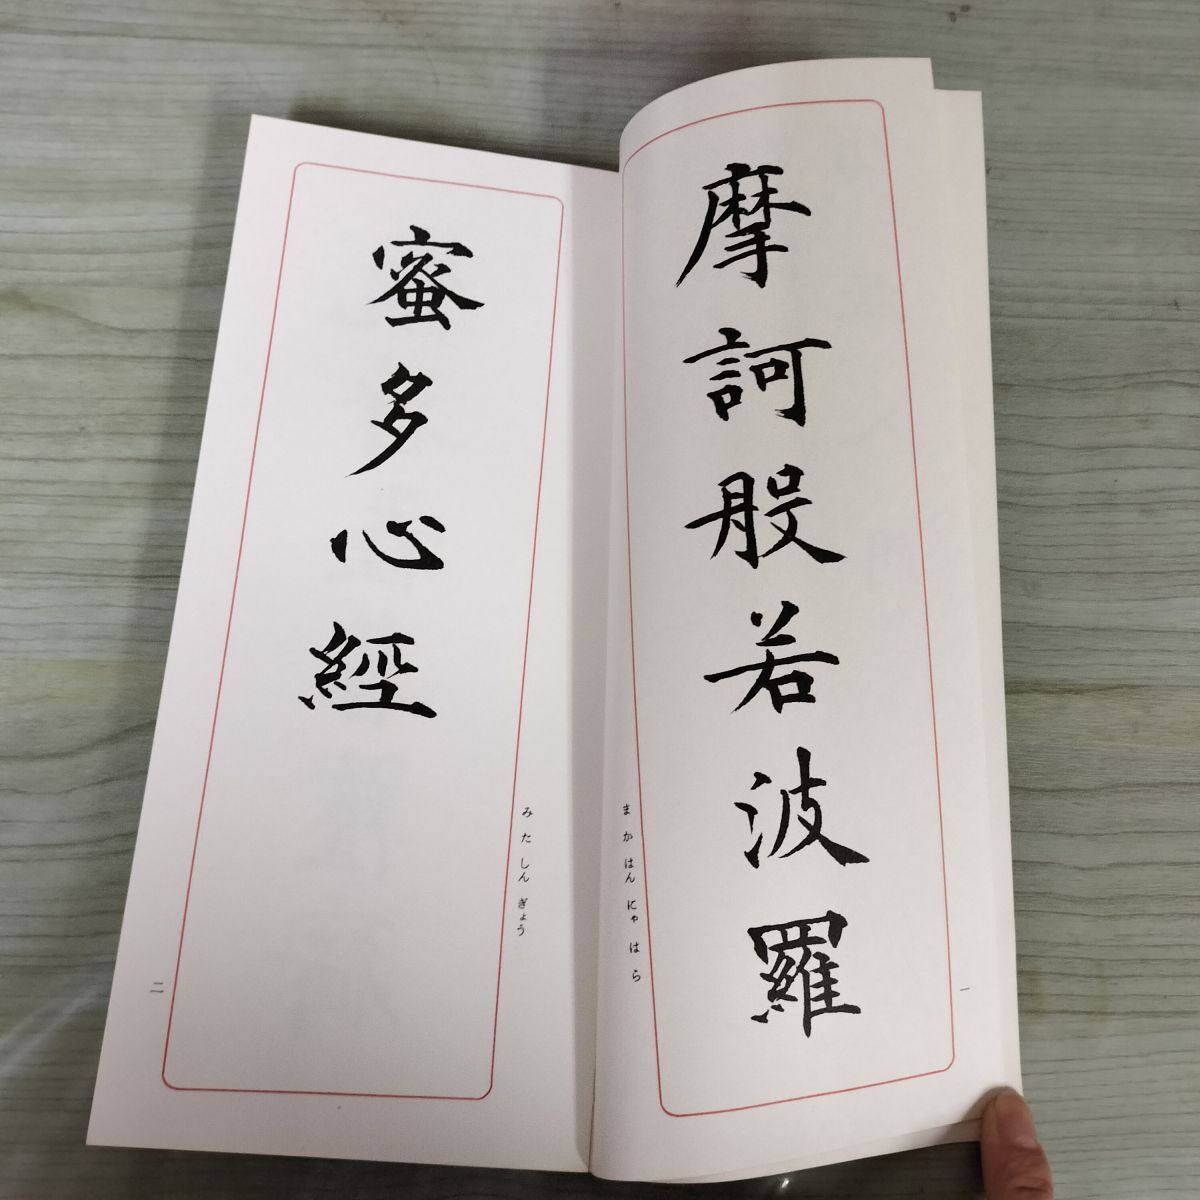 摩訶般若波羅
まかはんにゃはら
一
蜜多心經
みたしんぎょう
二